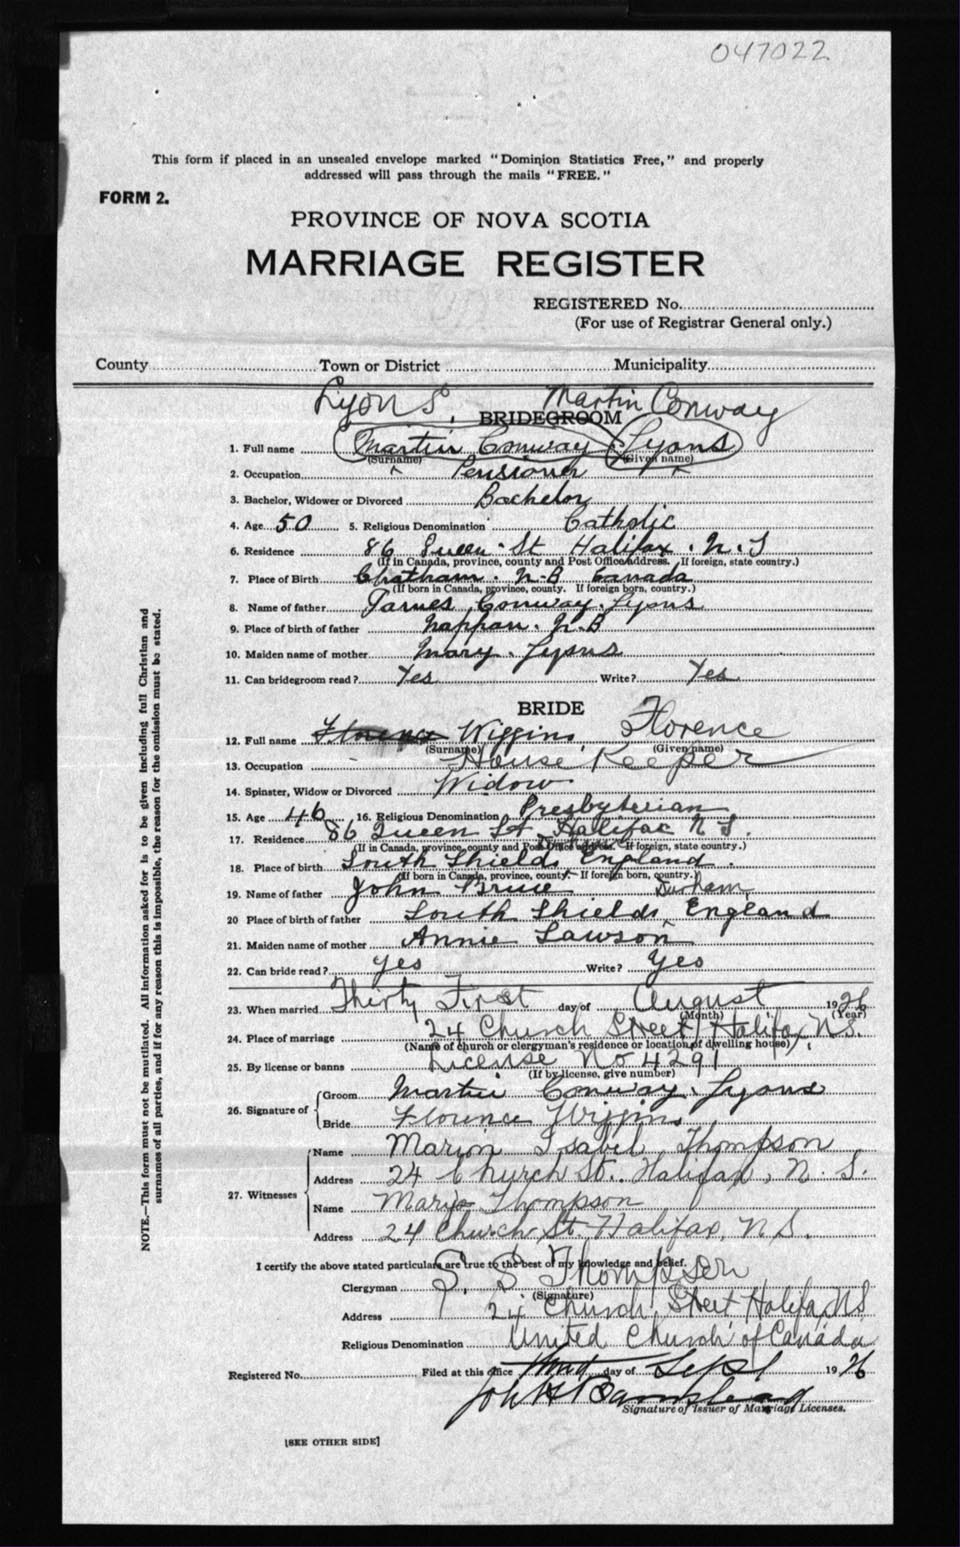 047022
This form if placed in an unsealed envelope marked "Dominion Statistics Free," and properly
addressed will pass through the mails "FREE."
FORM 2.
PROVINCE OF NOVA SCOTIA
MARRIAGE REGISTER
REGISTERED No.
(For use of Registrar General only.)
County Town or District Municipality
Lyons Martin Conway
BRIDEGROOM
1. Full name Martin Conway Lyons
(Surname) (Given name)
2. Occupation Pensioner
3. Bachelor, Widower or Divorced Bachelor
4. Age 50 5. Religious Denomination Catholic
6. Residence 86 Queen St Halifax. N.S
(If in Canada, province, county and Post Office address. If foreign, state country.)
7. Place of Birth Chatham. N-B Canada
(If born in Canada, province, county. If foreign born, country.)
8. Name of father James Conway Lyons
9. Place of birth of father Nappan. N.B
10. Maiden name of mother Mary. Lyons
11. Can bridegroom read? Yes Write? Yes
BRIDE
12. Full name Florence Wiggins Florence
(Surname) (Given name)
13. Occupation House Keeper
14. Spinster, Widow or Divorced Widow
15. Age 46 16. Religious Denomination Presbyterian
17. Residence 86 Queen St, Halifax N S.
(If in Canada, province, county and Post Office address. If foreign, state country.)
18. Place of birth South Shields England
(If born in Canada, province, county. If foreign born, country.)
19. Name of father John Bruce Durham,
20 Place of birth of father South Shields, England
21. Maiden name of mother Annie Lawson
22. Can bride read? yes Write? yes
23. When married Thirty First day of August 1926
(Month) (Year)
24. Place of marriage 24 Church Street, Halifax, N.S.
(Name of church or clergyman's residence or location of dwelling house)
25. By license or banns License No 4291
(If by license, give number)
26. Signature of Groom Martin Conway. Lyons
Bride Florence Wiggins
27. Witnesses Name Marion Isabel Thompson
Address 24 Church St. Halifax, N. S.
Name Marye Thompson
Address 24 Church St. Halifax, N.S.
I certify the above stated particulars are true to the best of my knowledge and belief.
Clergyman S. S Thompson
(Signature)
Address 24 Church Street Halifax NS
Religious Denomination United Church of Canada
Registered No. Filed at this office day of Sept 1926
Signature of Issuer of Marriage Licenses.
[SEE OTHER SIDE]
NOTE.—This form must not be mutilated. All information asked for is to be given including full Christian and
surnames of all parties, and if for any reason this is impossible, the reason for the omission must be stated.